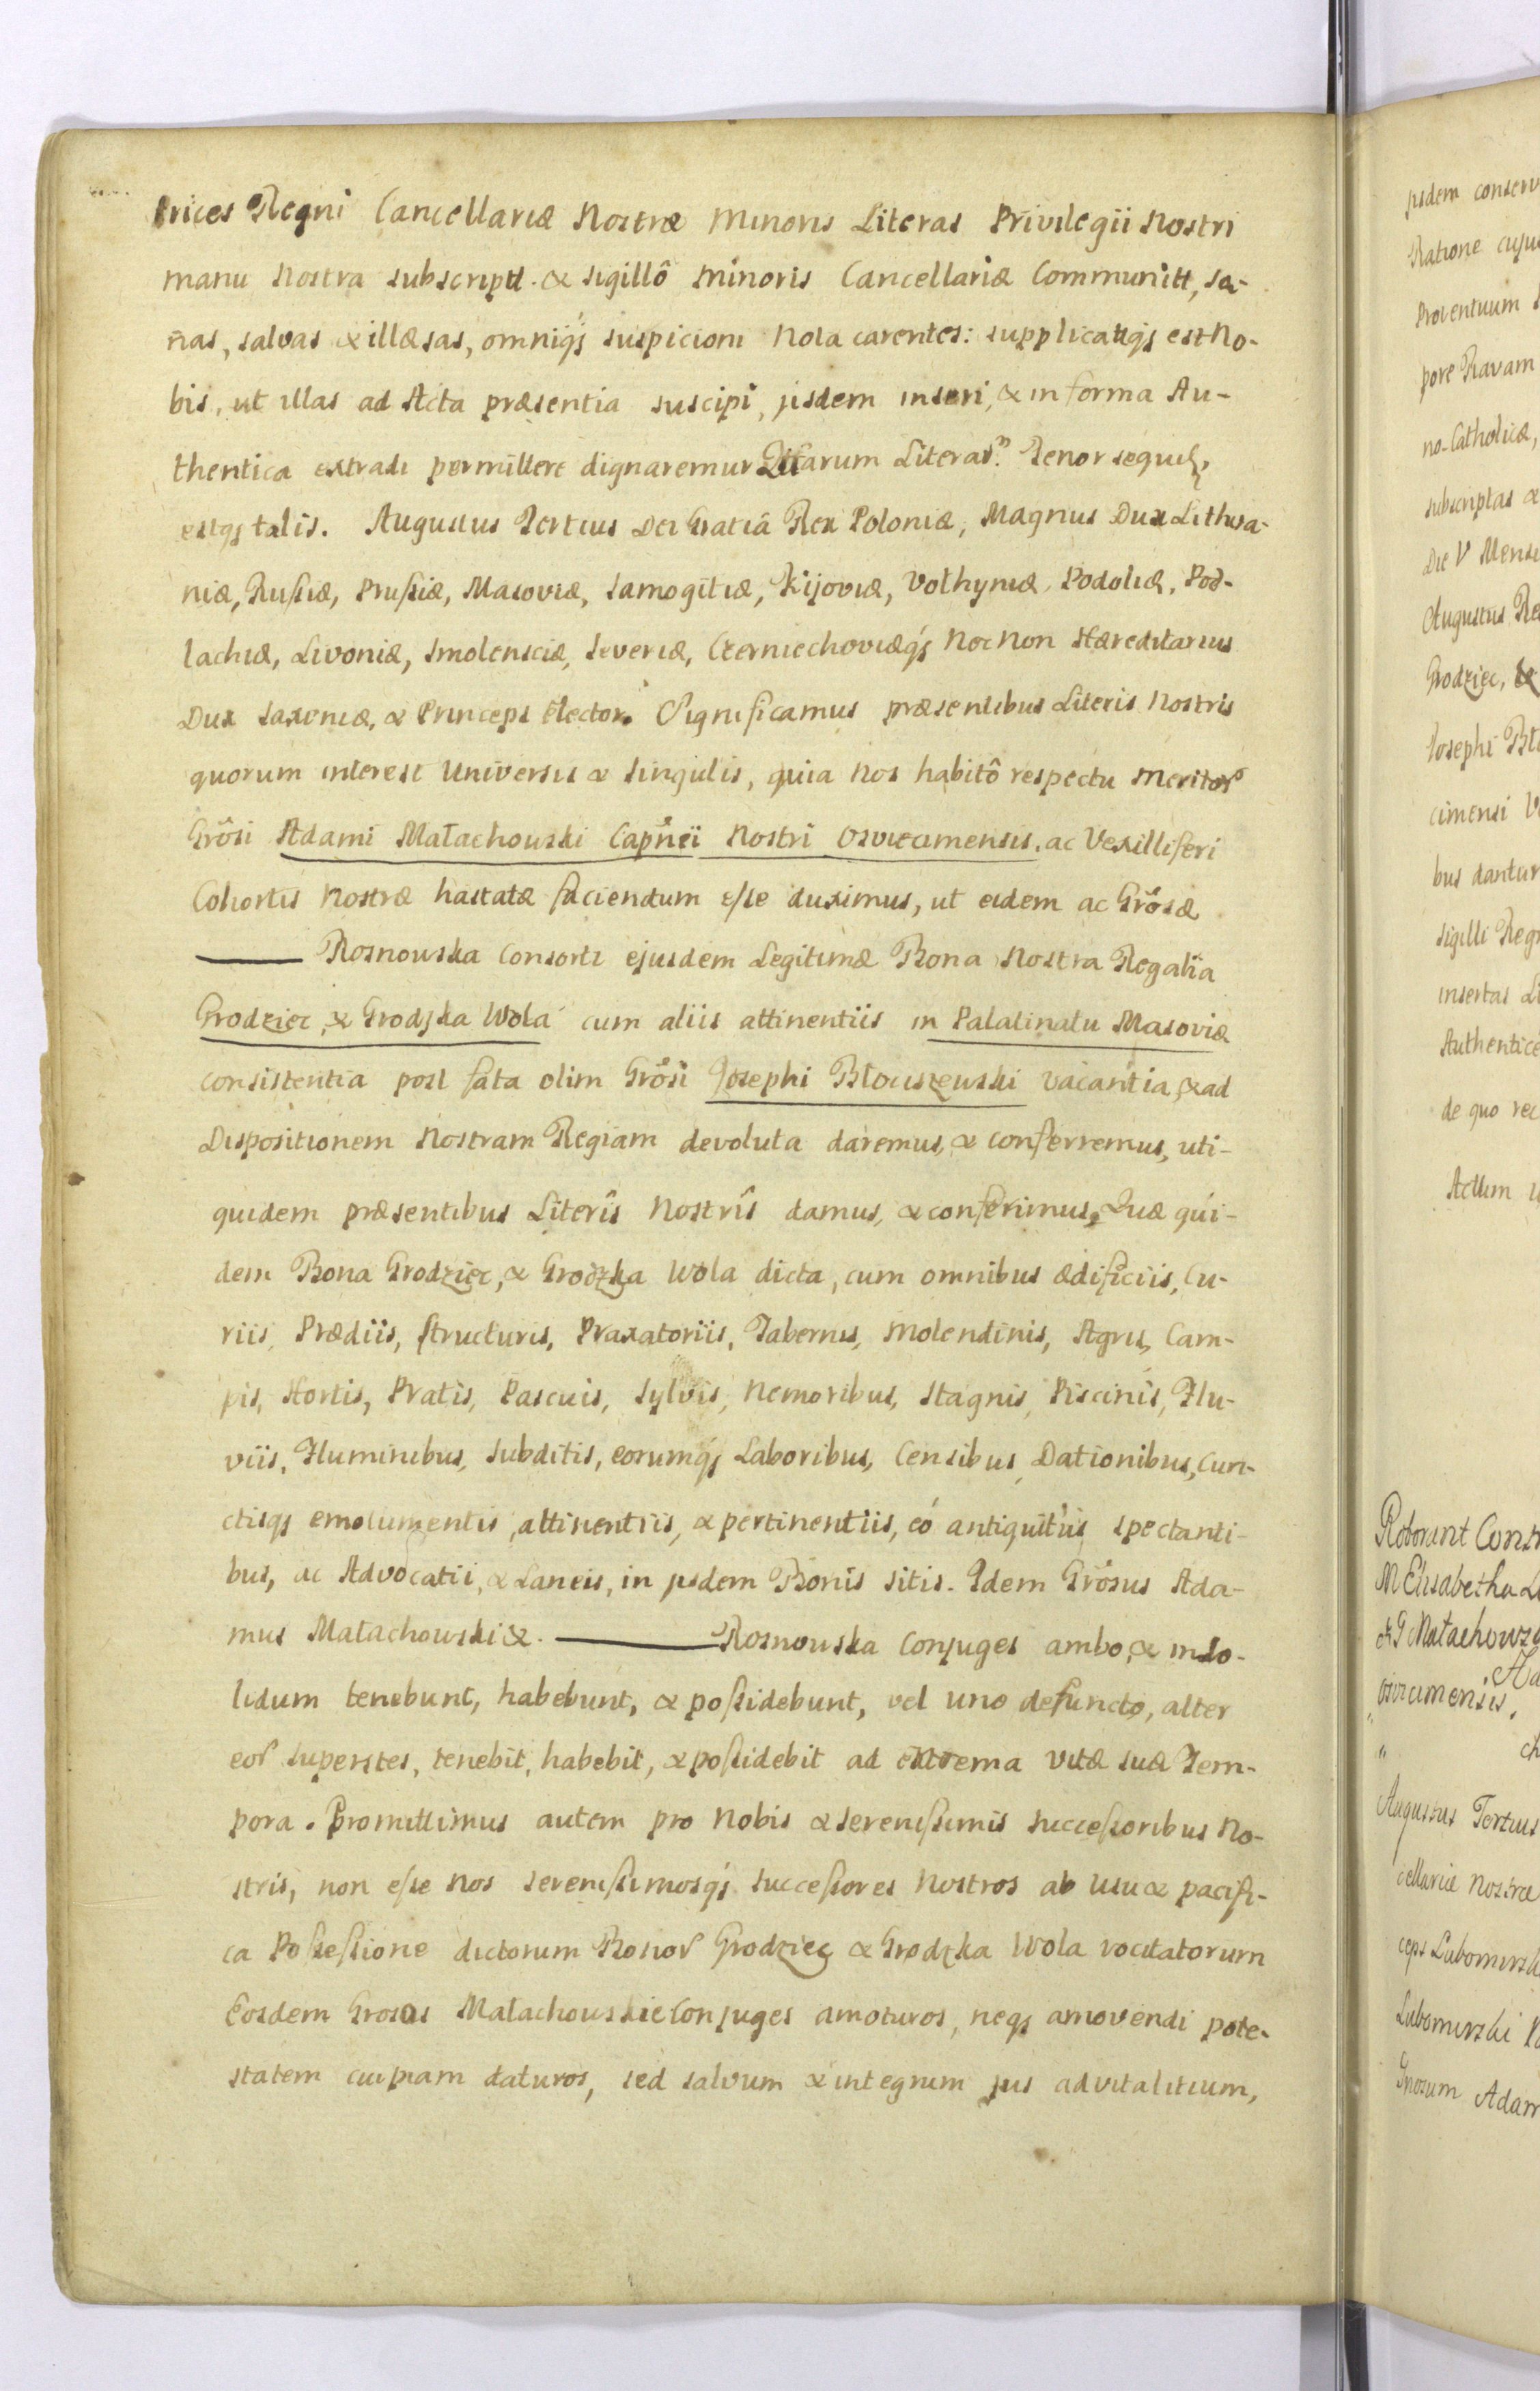 trices Regni Cancellariæ Nostræ Minoris Literas Privilegii Nostri
manu Nostra subscriptt. & sigillô Minoris Cancellariæ Communitt, sa-
nas, salvas & illæsas, omniq́; suspicioni Nota carentes: supplicatq́; est No-
bis, ut illas ad Acta præsentia suscipi, jisdem inseri, & in forma Au-
thentica extradi permittere dignaremur Literar. Tenor sequit,
estq; talis. Augustus Tertius Dei Gratiâ Rex Poloniæ, Magnus Dux Lithva-
niæ, Rusſiæ, Prusſiæ, Masoviæ, Samogitiæ, Kijoviæ, Volhyniæ, Podoliæ, Pod-
lachiæ, Livoniæ, Smolensciæ, Severiæ, Czerniechoviæq́; Nec Non Hæreditarius
Dux Saxoniæ, & Princeps Elector. Significamus præsentibus Literis Nostris
quorum interest Universis & singulis, quia Nos habitô respectu Meritor
Grôsi Adami Małachowski Capnei Nostri Osviecimensis, ac Vexilliferi
Cohortis Nostræ hastatæ faciendum eſse duximus, ut eidem ac Grôsæ
——— Rosnowska Consorti ejusdem Legitimæ Bona Nostra Regalia
Grodziec, & Grodzka Wola cum aliis attinentiis in Palatinatu Masoviæ
consistentia post fata olim Grôsi Josephi Błowszewski vacantia, & ad
Dispositionem Nostram Regiam devoluta daremus, & conferremus, uti-
quidem præsentibus Literis Nostris damus, & conferimus, Quæ qui-
dem Bona Grodziec, & Grodzka Wola dicta, cum omnibus ædificiis, Cu-
riis, Prædiis, structuris, Praxatoriis, Tabernis, Molendinis, Agris, Cam-
pis, Hortis, Pratis, Pascuis, Sylvis, Nemoribus, Stagnis, Piscinis, Flu-
viis, Fluminibus, Subditis, eorumq́; Laboribus, Censibus, Dationibus, Cun-
ctisq; emolumentis, attinentiis, & pertinentiis, eó antiquitùs spectanti-
bus, ac Advocatii, & Laneis, in jisdem Bonis sitis. Idem Grôsus Ada-
mus Małachowski & ——— Rosnowska Conjuges ambo, & in so-
lidum tenebunt, habebunt, & poſsidebunt, vel uno defuncto, alter
eor superstes, tenebit, habebit, & poſsidebit ad extrema vitæ suæ Tem-
pora. Promittimus autem pro Nobis & Sereniſsimis Succeſsoribus No-
stris, non eſse Nos Sereniſsimosq́; Succeſsores Nostros ab usu & pacifi-
ca Poſseſsione dictorum Bonor Grodziec & Grodzka Wola vocitatorum
Eosdem Grosos Małachowskie Conjuges amoturos, neq; amovendi pote-
statem cuipiam daturos, sed salvum & integrum jus advitalitium,
jisdem
Ratione
Proventuum
pore Ravam
no-Catholicæ,
subscriptas &
Die V
Augustus
Grodziec,
Josephi
cimensi
bus dantur
sigilli
insertas
Authentice
de quo
Actum
Roborant
M Elisabetha
Małachows
Osviecimensis,
Augustus Tertius
cellariæ Nostræ
ceps
Lubomirski
Gnosum Adam